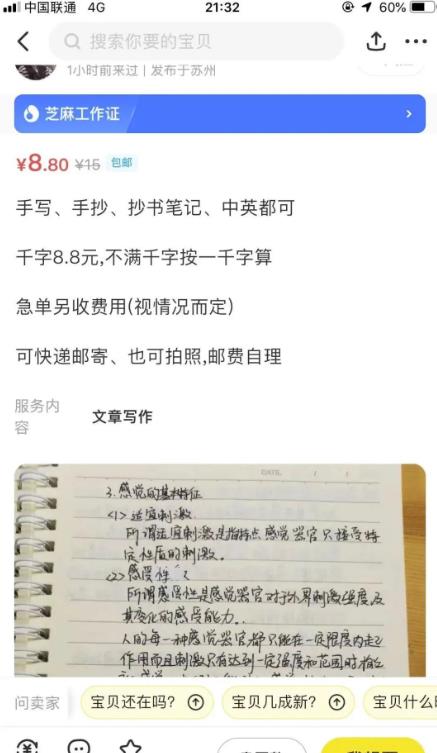 中国联通 4G 21:32 60%
搜索你要的宝贝
1小时前来过 | 发布于苏州
芝麻工作证
¥8.80 ¥15 包邮
手写、手抄、抄书笔记、中英都可
千字8.8元,不满千字按一千字算
急单另收费用(视情况而定)
可快递邮寄、也可拍照,邮费自理
服务内容 文章写作
DATE. / /
3.感觉的基本特征
<1>适宜刺激
所谓适宜刺激是指特点感觉器官只接受特
定性质的刺激。
<2>感受性
所谓感受性是感觉器官对于外界刺激强度及
其变化的感受能力.
人的每一种感觉器官都只能在一定限度内起
作用而且刺激只有达到一定强度和范围时
问卖家 宝贝还在吗? 宝贝几成新? 宝贝什么